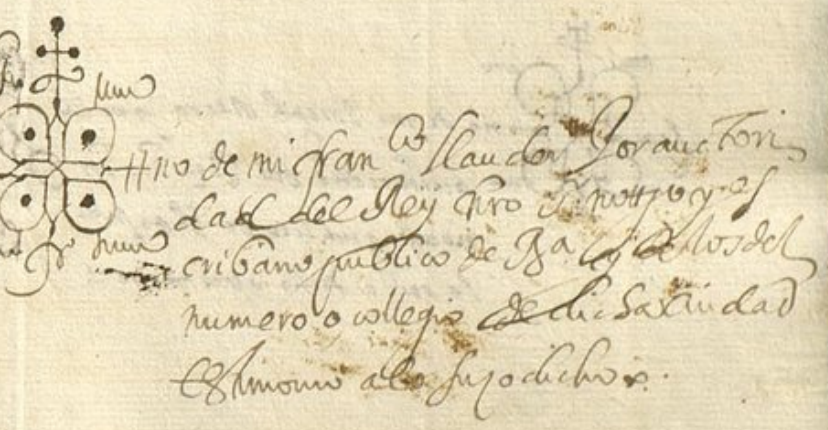 sig#no de mi franco llauder por auctori
dad del Rey nro sr notto po y es
cribano publico de Bça y de los del
numero o collegio de dicha Ciudad
testimonio a lo suzodicho.